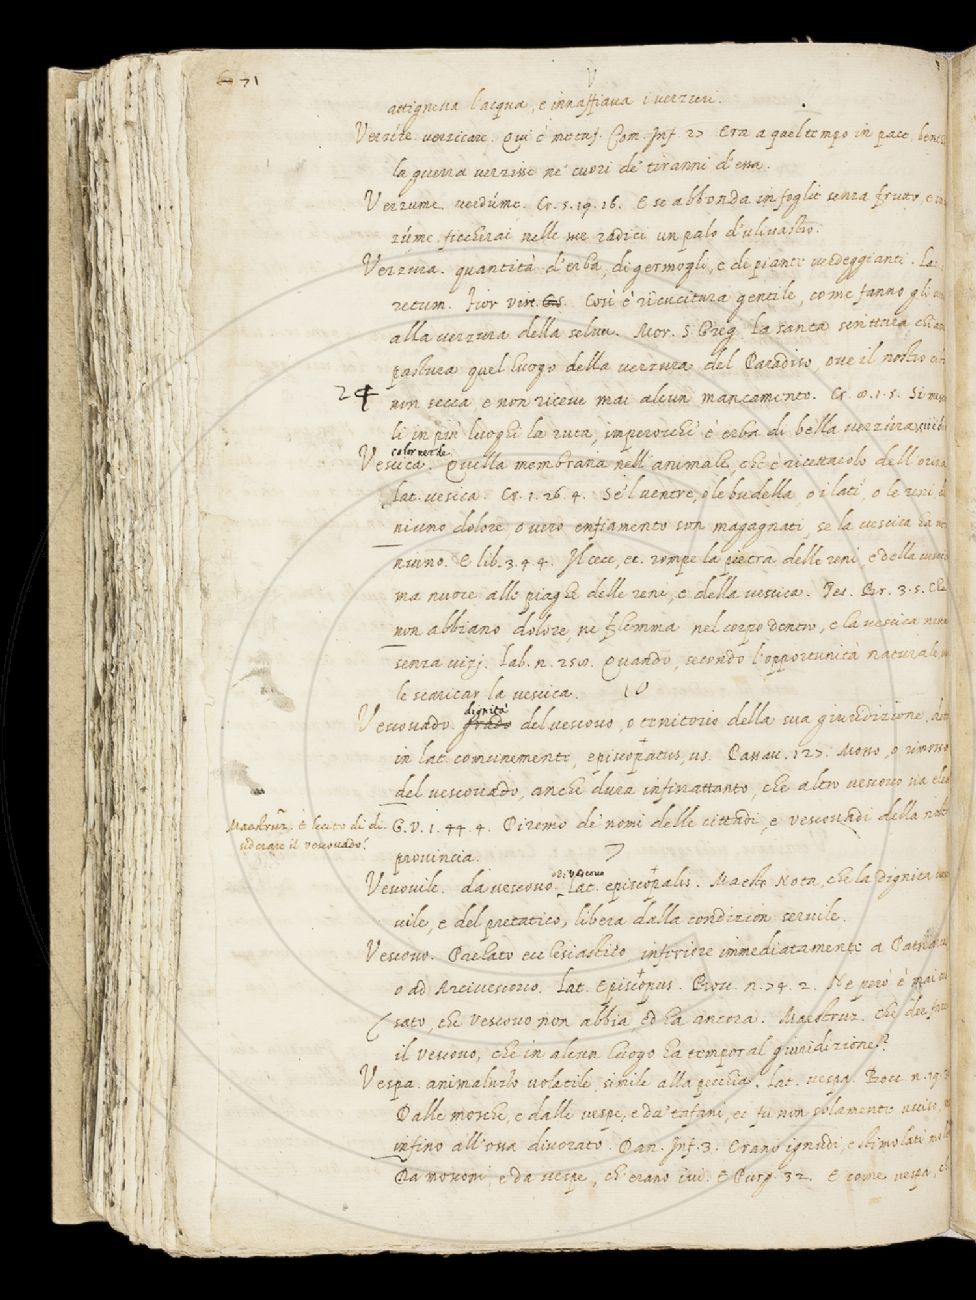 671
V
attigneua l'acqua, e innaffiaua i uerzieri.
uerzicare. Qui è metaf. Com. Inf. 27 Era a quel tempo in pace, benchè
la guerra uerzisse ne' cuori de' tiranni d'essa.
Verzume. uerdúme. Cr. 5. 19. 16. E se abbonda in foglie senza frutto, e in
zúme, ficcherai nelle sue radici un palo d'uliuastro.
Verzura. quantità d'erba, di germogli, e di piante uerdeggianti. Lat.
retum. Fior Virt. Così è ricucitura gentile, come fanno gli
alla uerzura della selua. Mor. S Greg. La santa scrittura chiama
pastura quel luogo della uerzura del Paradiso, oue il nostro
24 non secca e non riceue mai alcun mancamento. Cr. 1. 5. Si
li in più luoghi la ruta, imperocchè è erba di bella uerzúra
color uerde
Vescica. Quella membrana nell' animale, che è ricettacolo dell' orina
Lat. uesica. Cr. 1. 26. 4. Se 'l uentre, o le budella, o i lati, o le reni
niuno dolore, o uero enfiamento son magagnati, se la uescica ha
niuno. E lib. 3. 4. 4. Il cece, ec. rompe la pietra delle reni, e della
ma nuoce alle piaghe delle rene, e della uescica. Tes. Br. 3. 5. Che
non abbiano dolore, ne flemma nel corpo dentro, e la uescica
senza uizj. Lab. n. 250. Quando, secondo l'opportunità naturale,
le scaricar la uescica. 10
dignità
Vescouado. grado del uescouo, o territorio della sua giuridizione,
in lat. comunemente, episcopatus, us. Passau. 127. Morto, o rimosso
del uescouado, anche dura infinattanto, che altro uescouo sia
Maestruz. È lecito di di- G. V. 1. 44. 4. Diremo de' nomi delle cittadi, e uescouadi della
siderare il uescouado?
prouincia. 7
di Vescouo
Vescouile. da uescouo. Lat. episcopalis. Nota, che la dignità
uile, e del pretatico, libera dalla condizion seruile.
Vescouo. Prelato ecclesiastico inferiore immediatamente a
o ad Arciuescouo. Lat. Episcopus. Bocc. n. 74. 2. Ne però è mai
sato, che Vescouo non abbia ed ha ancora. Maestruz. che dee fare
il Vescouo, che in alcun luogo ha temporal giuridizione?
Vespa. animaluzzo uolatile, simile alla pecchia. Lat. uespa. Bocc n. 19.
Dalle mosche, e dalle uespe, e da' tafani, ec fu non solamente ucciso,
infino all' ossa diuorato. Dan. Inf. 3. Erano ignudi, e stimolati
Da mosconi, e da uespe, ch' erano iui. E Purg. 32. E come uespa,